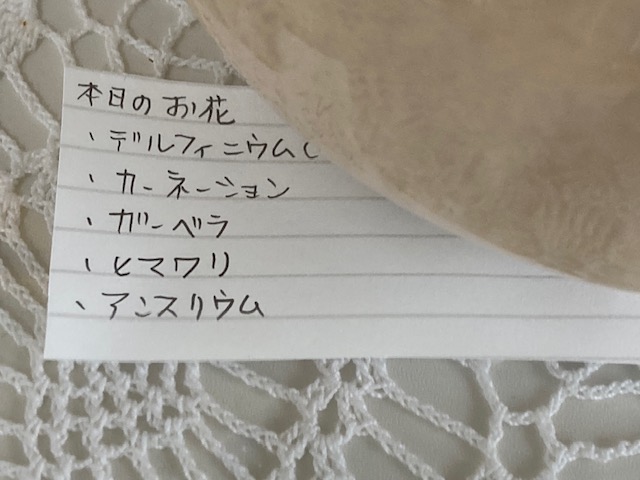 本日のお花
・デルフィニウム(
・カーネーション
・ガーベラ
・ヒマワリ
・アンスリウム